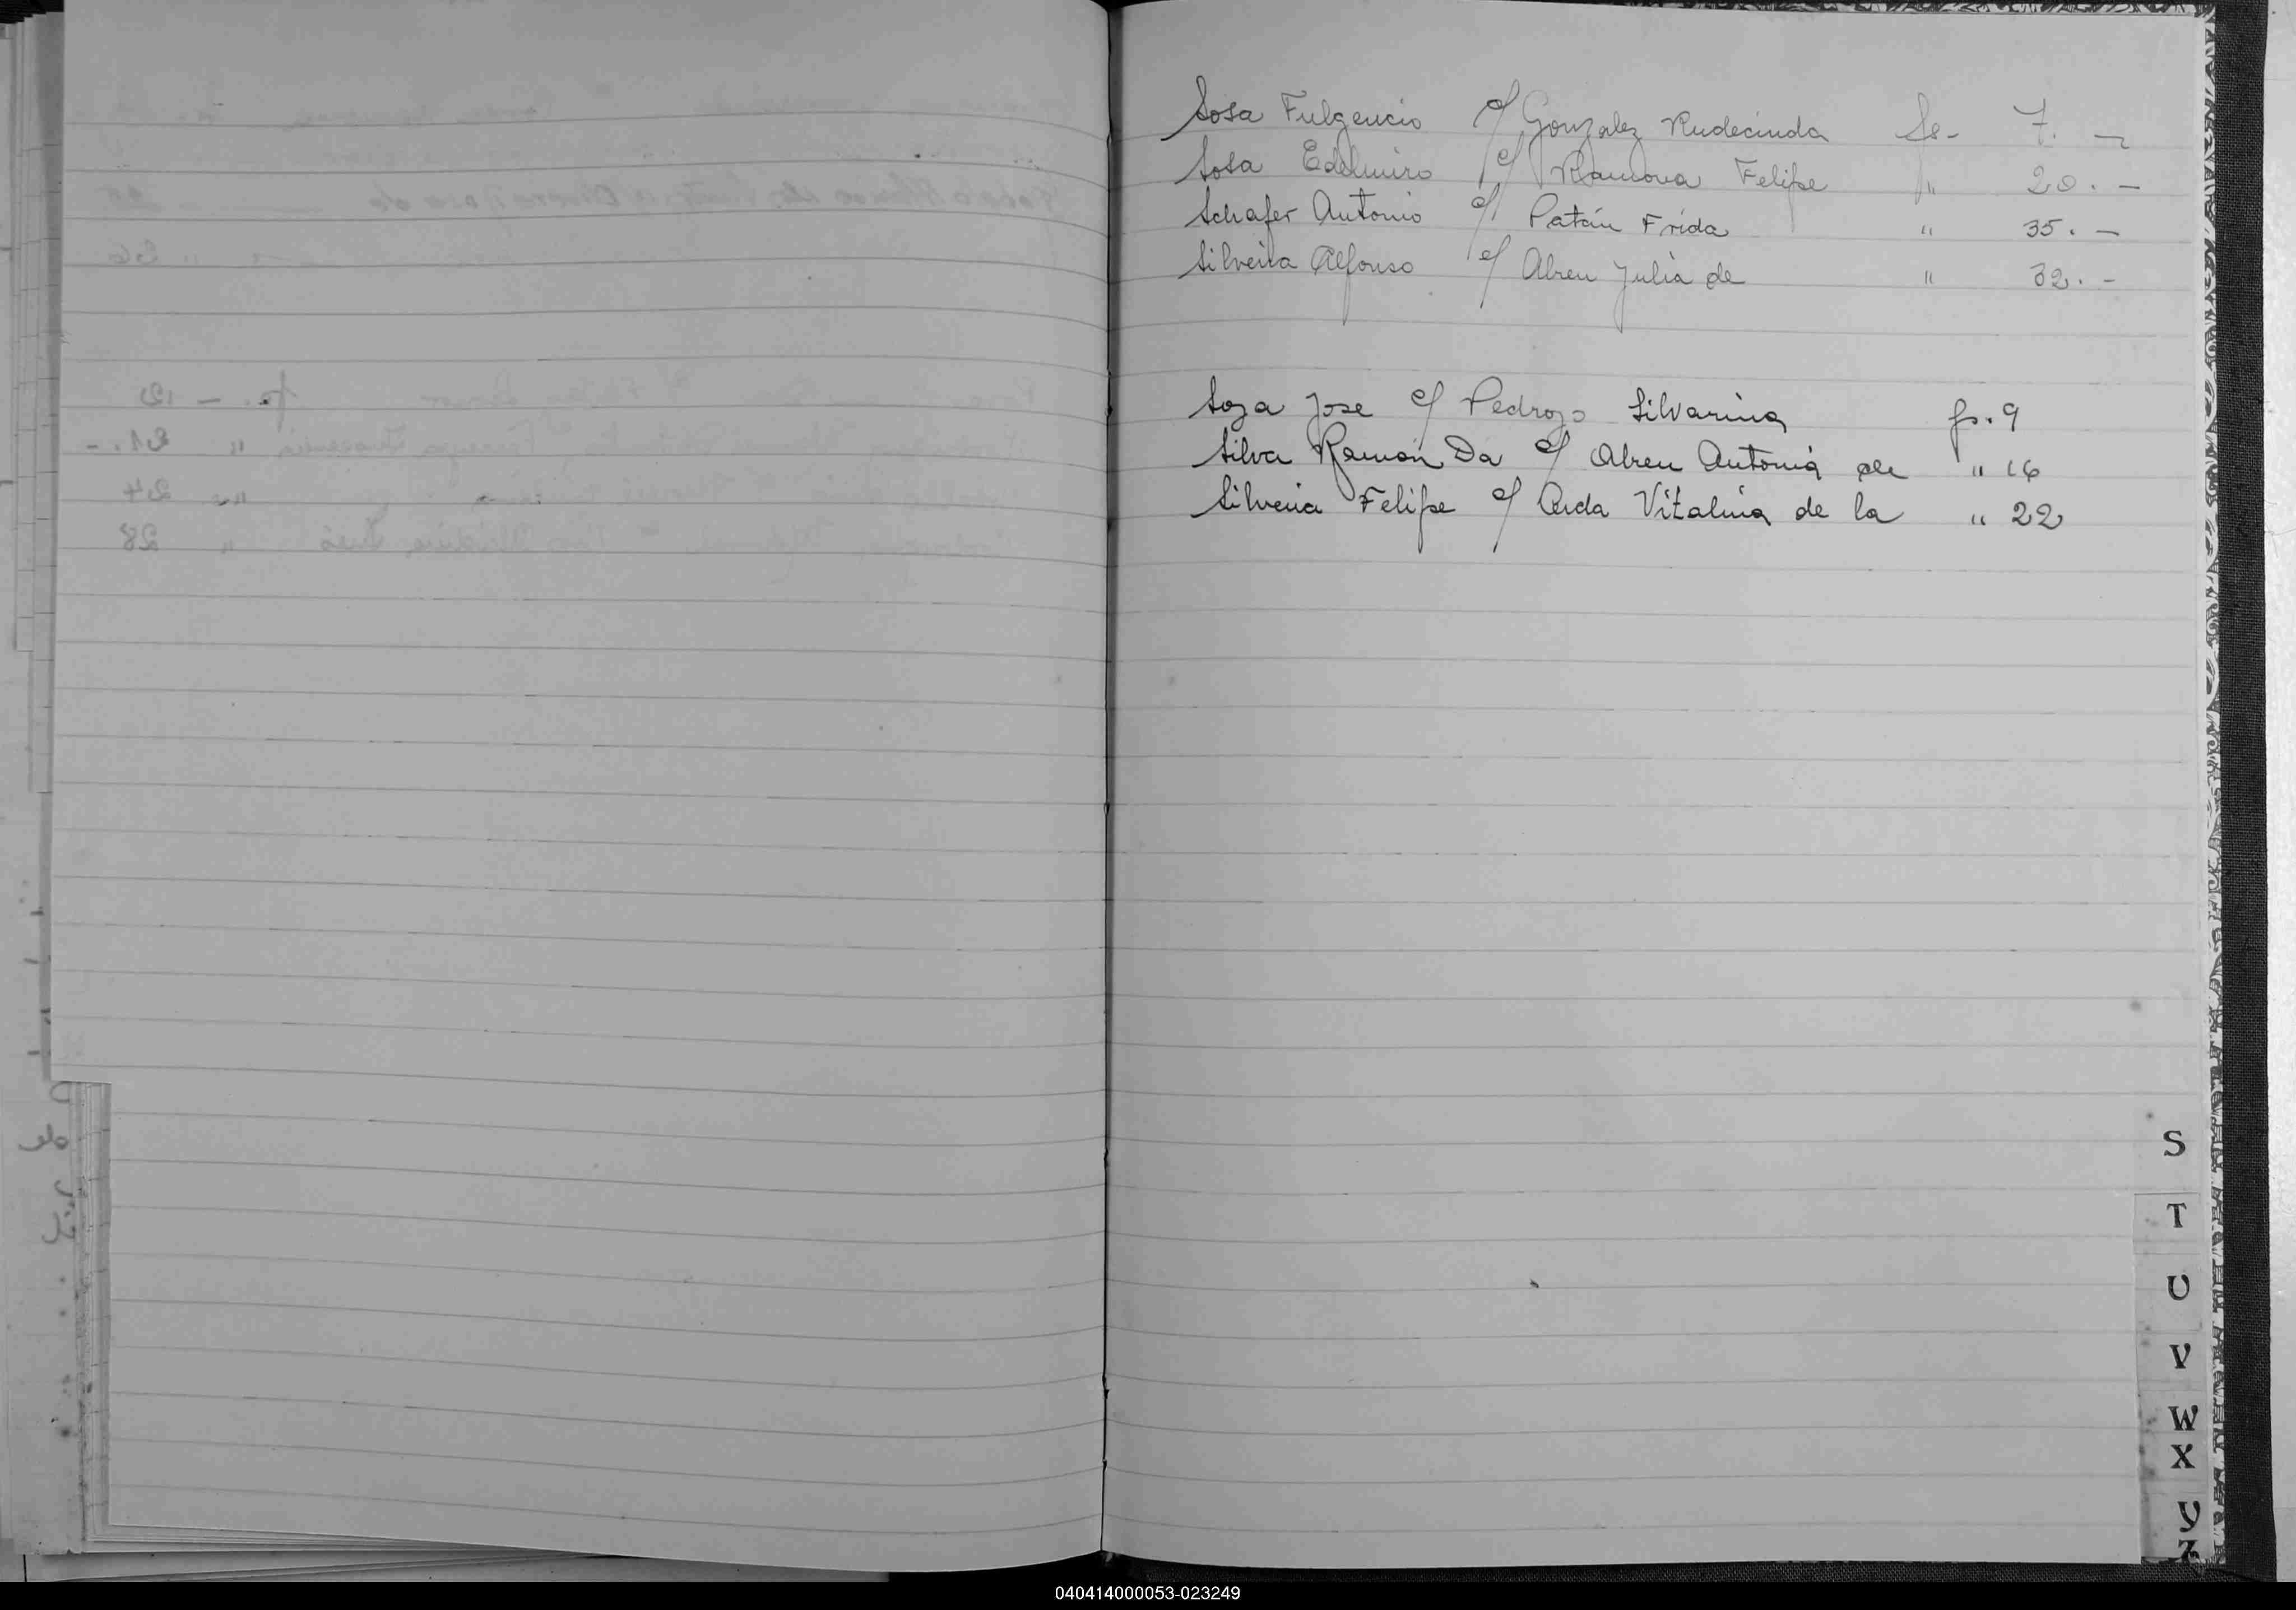 Sosa Fulgencio c/ Gonzalez Rudecinda fs- 7. -
Sosa Edelmiro c/ Ramona Felipe " 20. -
Schafer Antonio c/ Patán Frida " 35. -
Silveira Alfonso c/ Abreu Julia de " 32. -
Soza Jose c/ Pedrozo Silvarina fs. 9
Silva Ramón Da c/ Abreu Antonia de " 16
Silveira Felipe c/ Vitalina de la " 22
S
T
U
V
W
X
Y
Z
040414000053-023249